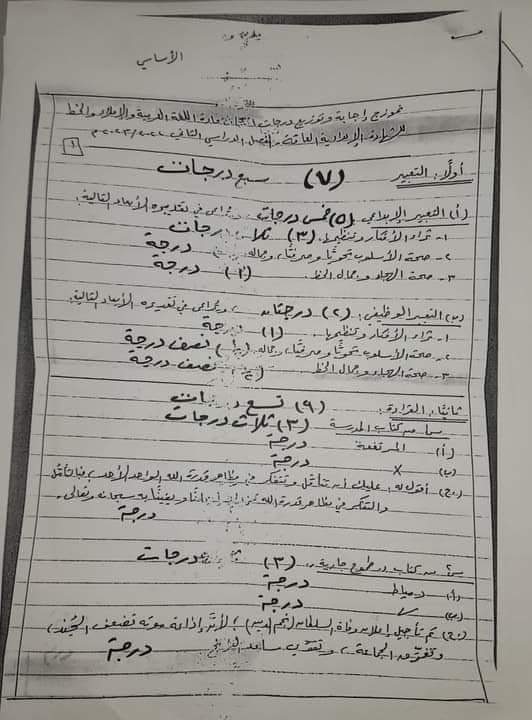 الأساسي
نموذج إجابة وتوزيع درجات امتحان مادة اللغة العربية والإملاء والخط
للشهادة الإعدادية العامة الفصل الدراسي الثاني ٢٠٢٢/٢٠٢٣ م
١
أولًا: التعبير (٧) سبع درجات
(أ) التعبير الإبداعي (٥) خمس درجات، ويراعى في تقديره الأبعاد التالية:
١- ثراء الأفكار وتنظيمها. (٣) ثلاث درجات
٢- صحة الأسلوب نحويًّا وصرفيًّا، وجماله درجة
٣- صحة الهجاء وجمال الخط. (١) درجة
(ب) التعبير الوظيفي: (٢) درجتان، ويراعى في تقديره الأبعاد التالية:
١- ثراء الأفكار وتنظيمها. (١) درجة
٢- صحة الأسلوب نحويًّا وصرفيًّا، وجماله. (١/٢) نصف درجة
٣- صحة الهجاء وجمال الخط. (١/٢) نصف درجة
ثانيًا: القراءة: (٩) تسع درجات
س١ من كتاب المدرسة (٣) ثلاث درجات
(أ) المرتفعة درجة
(ب) X درجة
(ج) أقول له: عليك أن تتأمل وتتفكر في مظاهر قدرة الله الواحد الأحد، فبالتأمل
والتفكر في مظاهر قدرة الله نزداد إيمانًا ويقينًا به سبحانه وتعالى.
درجة
س٢ من كتاب طموح جارية، (٣) ثلاث درجات
(أ) دمياط درجة
(ب) ✓ درجة
(ج) تم تأجيل إعلان وفاة السلطان (نجم الدين)؛ لأن إذاعة موته تضعف الجند،
وتفرق الجماعة، وتقوي ساعد درجة